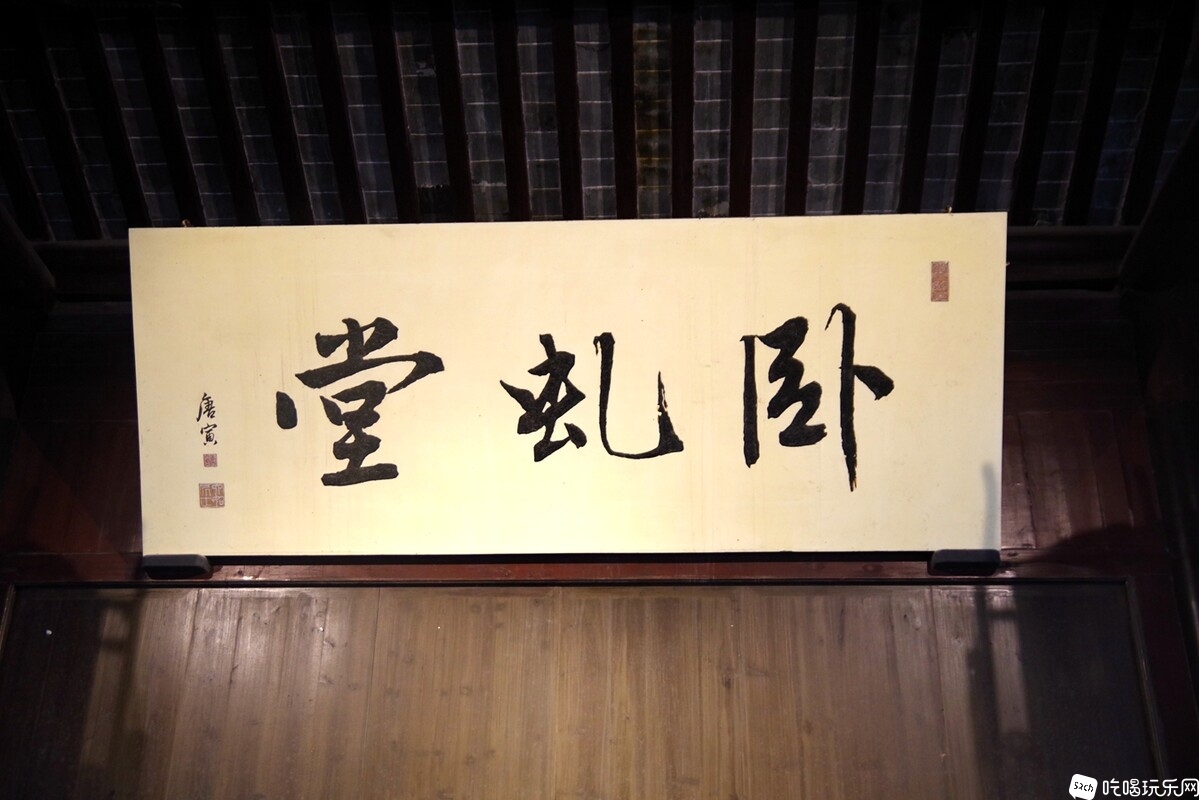 卧虬堂
唐寅
Sach 吃喝玩乐网